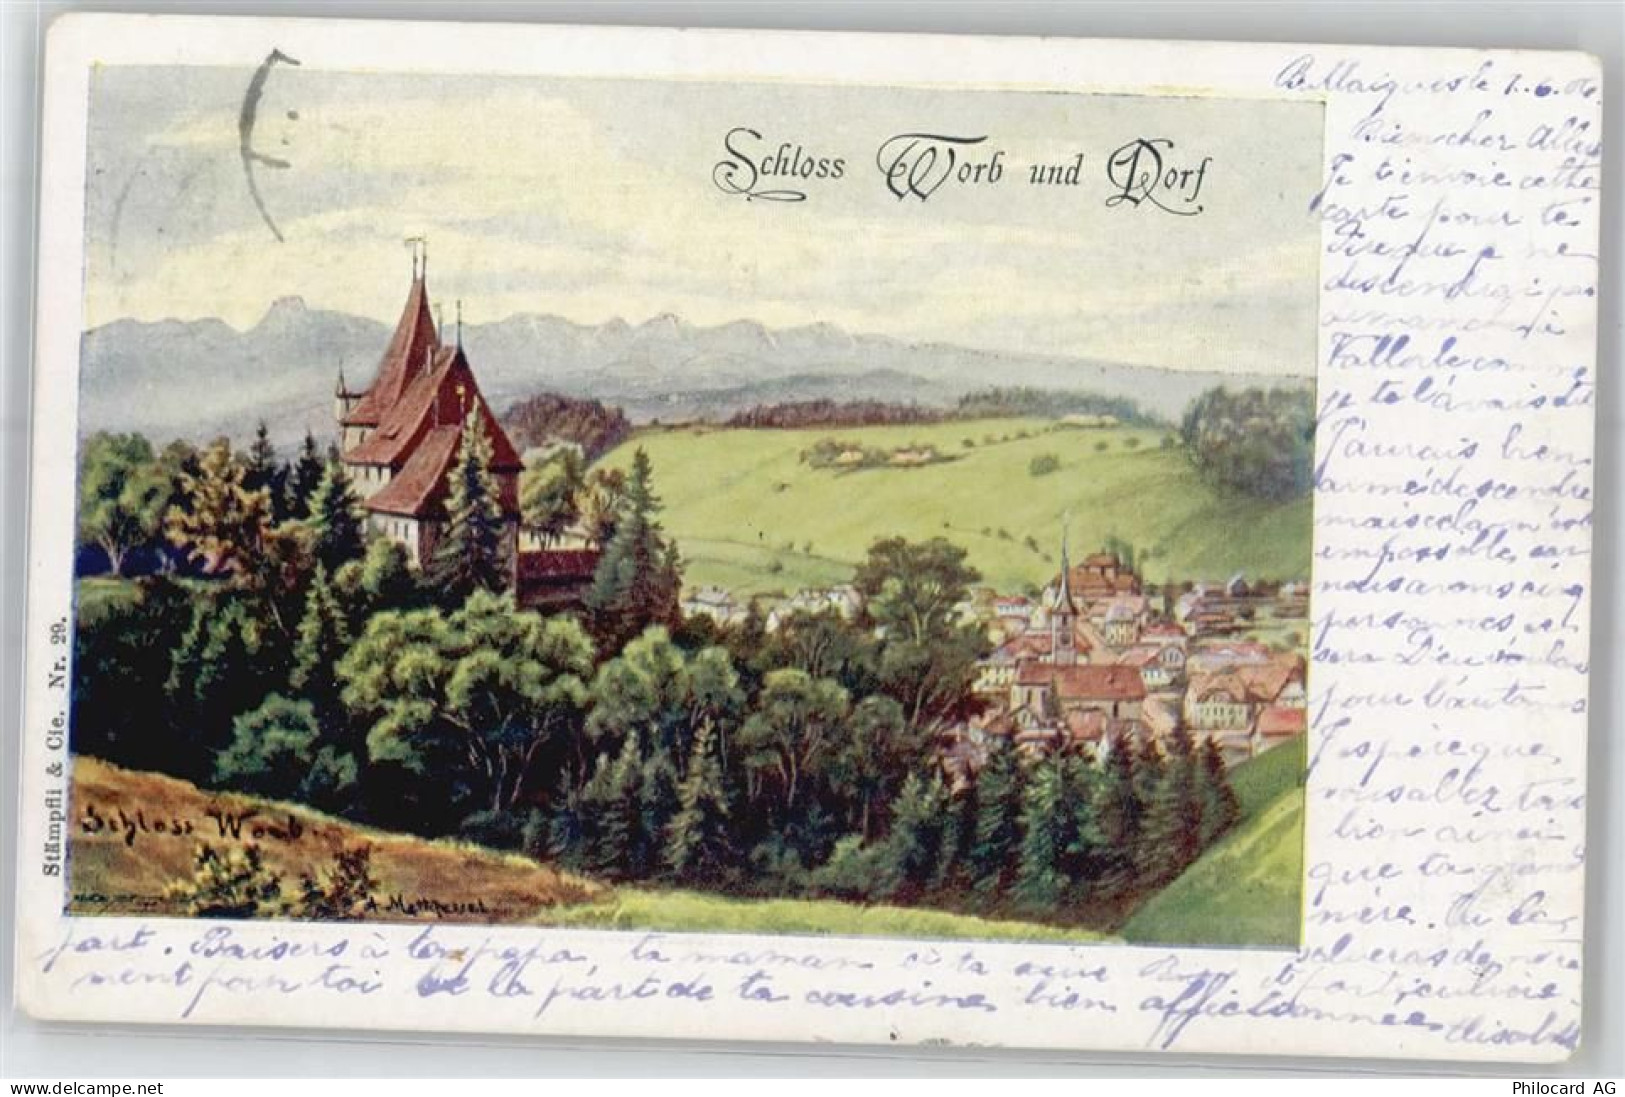 Schloss Worb und Dorf
Stämpfli & Cie. Nr. 29.
Schloss Worb.
1.6.06.
Bien cher
Je t'envoie cette
carte pour te
que je ne
descendrai pas
dimanche à
comme
je te l'avais dit
J'aurais bien
aimé descendre
mais cela m'est
impossible car
nous avons cinq
personnes et
sera
pour l'automne
J'espère que
vous allez tous
bien ainsi
que ta grand
mère. Tu la
salueras de notre
part. Baisers à ton papa ta maman et
particulière-
ment pour toi de la part de ta cousine bien affectionnée
delcampe.net
Philocard AG